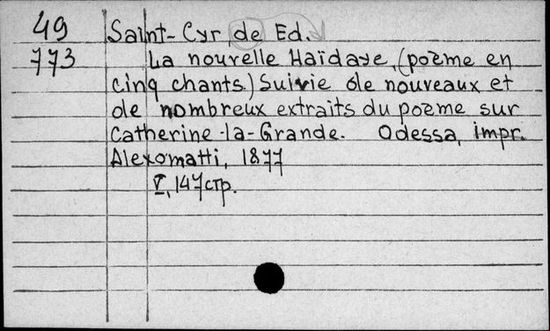 49 Saint-Cyr, de Ed.
773 La nouvelle Haïdaye, (poème en
cinq chants.) Suivie de nouveaux et
de nombreux extraits du poème sur
Catherine-la-Grande. Odessa, impr.
Alexomatti, 1877
V, 147стр.